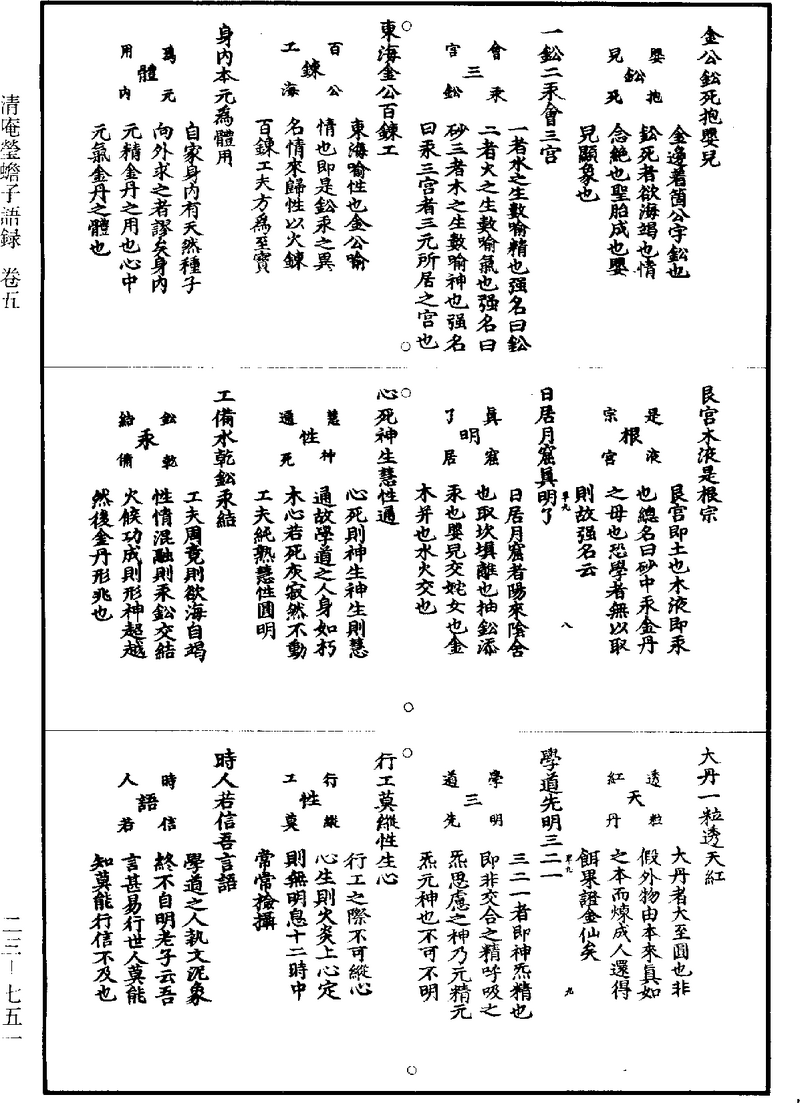 金公鈆死抱嬰兒
嬰 抱
鈆
兒 死
金邊着箇公字鈆也
鈆死者欲海竭也情
念絶也聖胎成也嬰
兒顯象也
一鈆二汞會三宫
會 汞
三
宫 鈆
一者水之生數喻精也强名曰鈆
二者火之生數喻氣也强名曰
砂三者木之生數喻神也强名
曰汞三宫者三元所居之宫也
東海金公百鍊工
百 公
鍊
工 海
東海喻性也金公喻
情也即是鈆汞之異
名情來歸性以火鍊
百鍊工夫方爲至寳
身内本元爲體用
爲 元
體
用 内
自家身内有天然種子
向外求之者謬矣身内
元精金丹之用也心中
元氣金丹之體也
艮宫木液是根宗
是 液
根
宗 宫
艮宫即土也木液即汞
也總名曰砂中汞金丹
之母也恐學者無以取
則故强名云
日居月窟眞明了
眞 窟
明
了 居
日居月窟者陽來陰舍
也取坎填離也抽鈆添
汞也嬰兒交姹女也金
木并也水火交也
心死神生慧性通
慧 神
性
通 死
心死則神生神生則慧
通故學道之人身如朽
木心若死灰寂然不動
工夫純熟慧性圓明
工備水乾鈆汞結
鈆 乾
汞
結 備
工夫周竟則欲海自竭
性情混融則汞鈆交結
火候功成則形神超越
然後金丹形兆也
單九
八
大丹一粒透天紅
透 粒
天
紅 丹
大丹者大至圓也非
假外物由本來眞如
之本而煉成人還得
餌果證金仙矣
學道先明三二一
學 明
三
道 先
三二一者即神炁精也
即非交合之精呼吸之
炁思慮之神乃元精元
炁元神也不可不明
行工莫縱性生心
行 縱
性
工 莫
行工之際不可縱心
心生則火炎上心定
則無明息十二時中
常常撿攝
時人若信吾言語
時 信
語
人 若
學道之人執文泥象
終不自明老子云吾
言甚易行世人莫能
知莫能行信不及也
單九
九
清庵瑩蟾子語録 卷五
二三—七五一